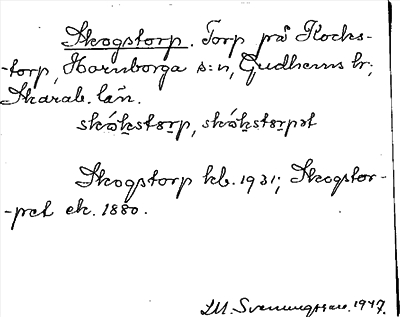 Skogstorp. Torp på Kocks-
-torp, Hornborga s:n, Gudhems hr;
Skarab. län.
skó̱kstor̠p, skó̱kstor̠pət
Skogstorp kb. 1931; Skogstor-
-pet ek. 1880.
LM. Svenungsson. 1947.